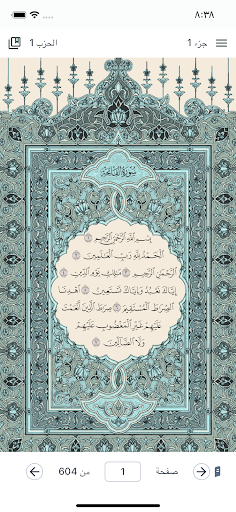 ٨:٣٨
جزء 1
الحزب 1
سُورَةُ الفَاتِحَةِ
بِسْمِ اللَّهِ الرَّحْمَٰنِ الرَّحِيمِ ١
الْحَمْدُ لِلَّهِ رَبِّ الْعَالَمِينَ ٢
الرَّحْمَٰنِ الرَّحِيمِ ٣ مَالِكِ يَوْمِ الدِّينِ ٤
إِيَّاكَ نَعْبُدُ وَإِيَّاكَ نَسْتَعِينُ ٥ اهْدِنَا
الصِّرَاطَ الْمُسْتَقِيمَ ٦ صِرَاطَ الَّذِينَ أَنْعَمْتَ
عَلَيْهِمْ غَيْرِ الْمَغْضُوبِ عَلَيْهِمْ
وَلَا الضَّالِّينَ ٧
صفحة 1 من 604